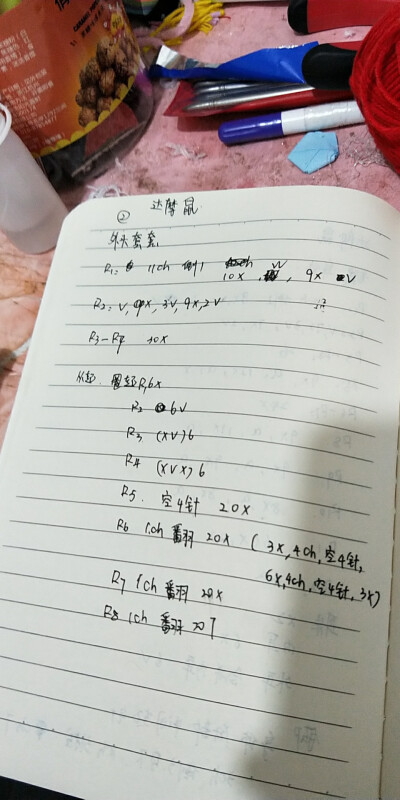 ② 达摩鼠
外头套套
R1: 11ch 倒1 10X, W, 9X V
R2: V, 9X, 3V, 9X, 2V
R3-R9 30X
圈起R1 6X
R2 6V
R3 (XV)6
R4 (XVX)6
R5. 空4针 20X
R6 1ch 翻 20X (3X, 4ch, 空4针,
6X, 4ch, 空4针, 3X)
R7 1ch 翻 20X
R8 1ch 翻